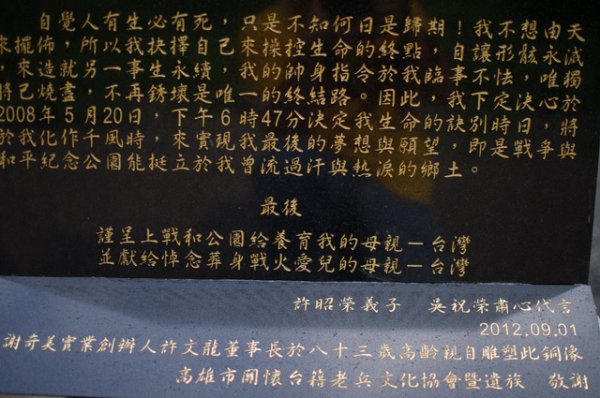 自覺人有生必有死，只是不知何日是歸期！我不想由天
來擺佈，所以我抉擇自己來操控生命的終點，自讓形骸永滅
來造就另一事生永續，我的帥身指令於我臨事不怯，唯獨
將己燒盡，不再銹壞是唯一的終結路。因此，我下定決心於
2008年5月20日，下午6時47分決定我生命的訣別時日，將
於我化作千風時，來實現我最後的夢想與願望，即是戰爭與
和平紀念公園能挺立於我曾流過汗與熱淚的鄉土。
最後
謹呈上戰和公園給養育我的母親－台灣
並獻給悼念葬身戰火愛兒的母親－台灣
許昭榮義子　吳祝榮肅心代言
2012.09.01
謝奇美實業創辦人許文龍董事長於八十三歲高齡親自雕塑此銅像
高雄市關懷台籍老兵文化協會暨遺族　敬謝